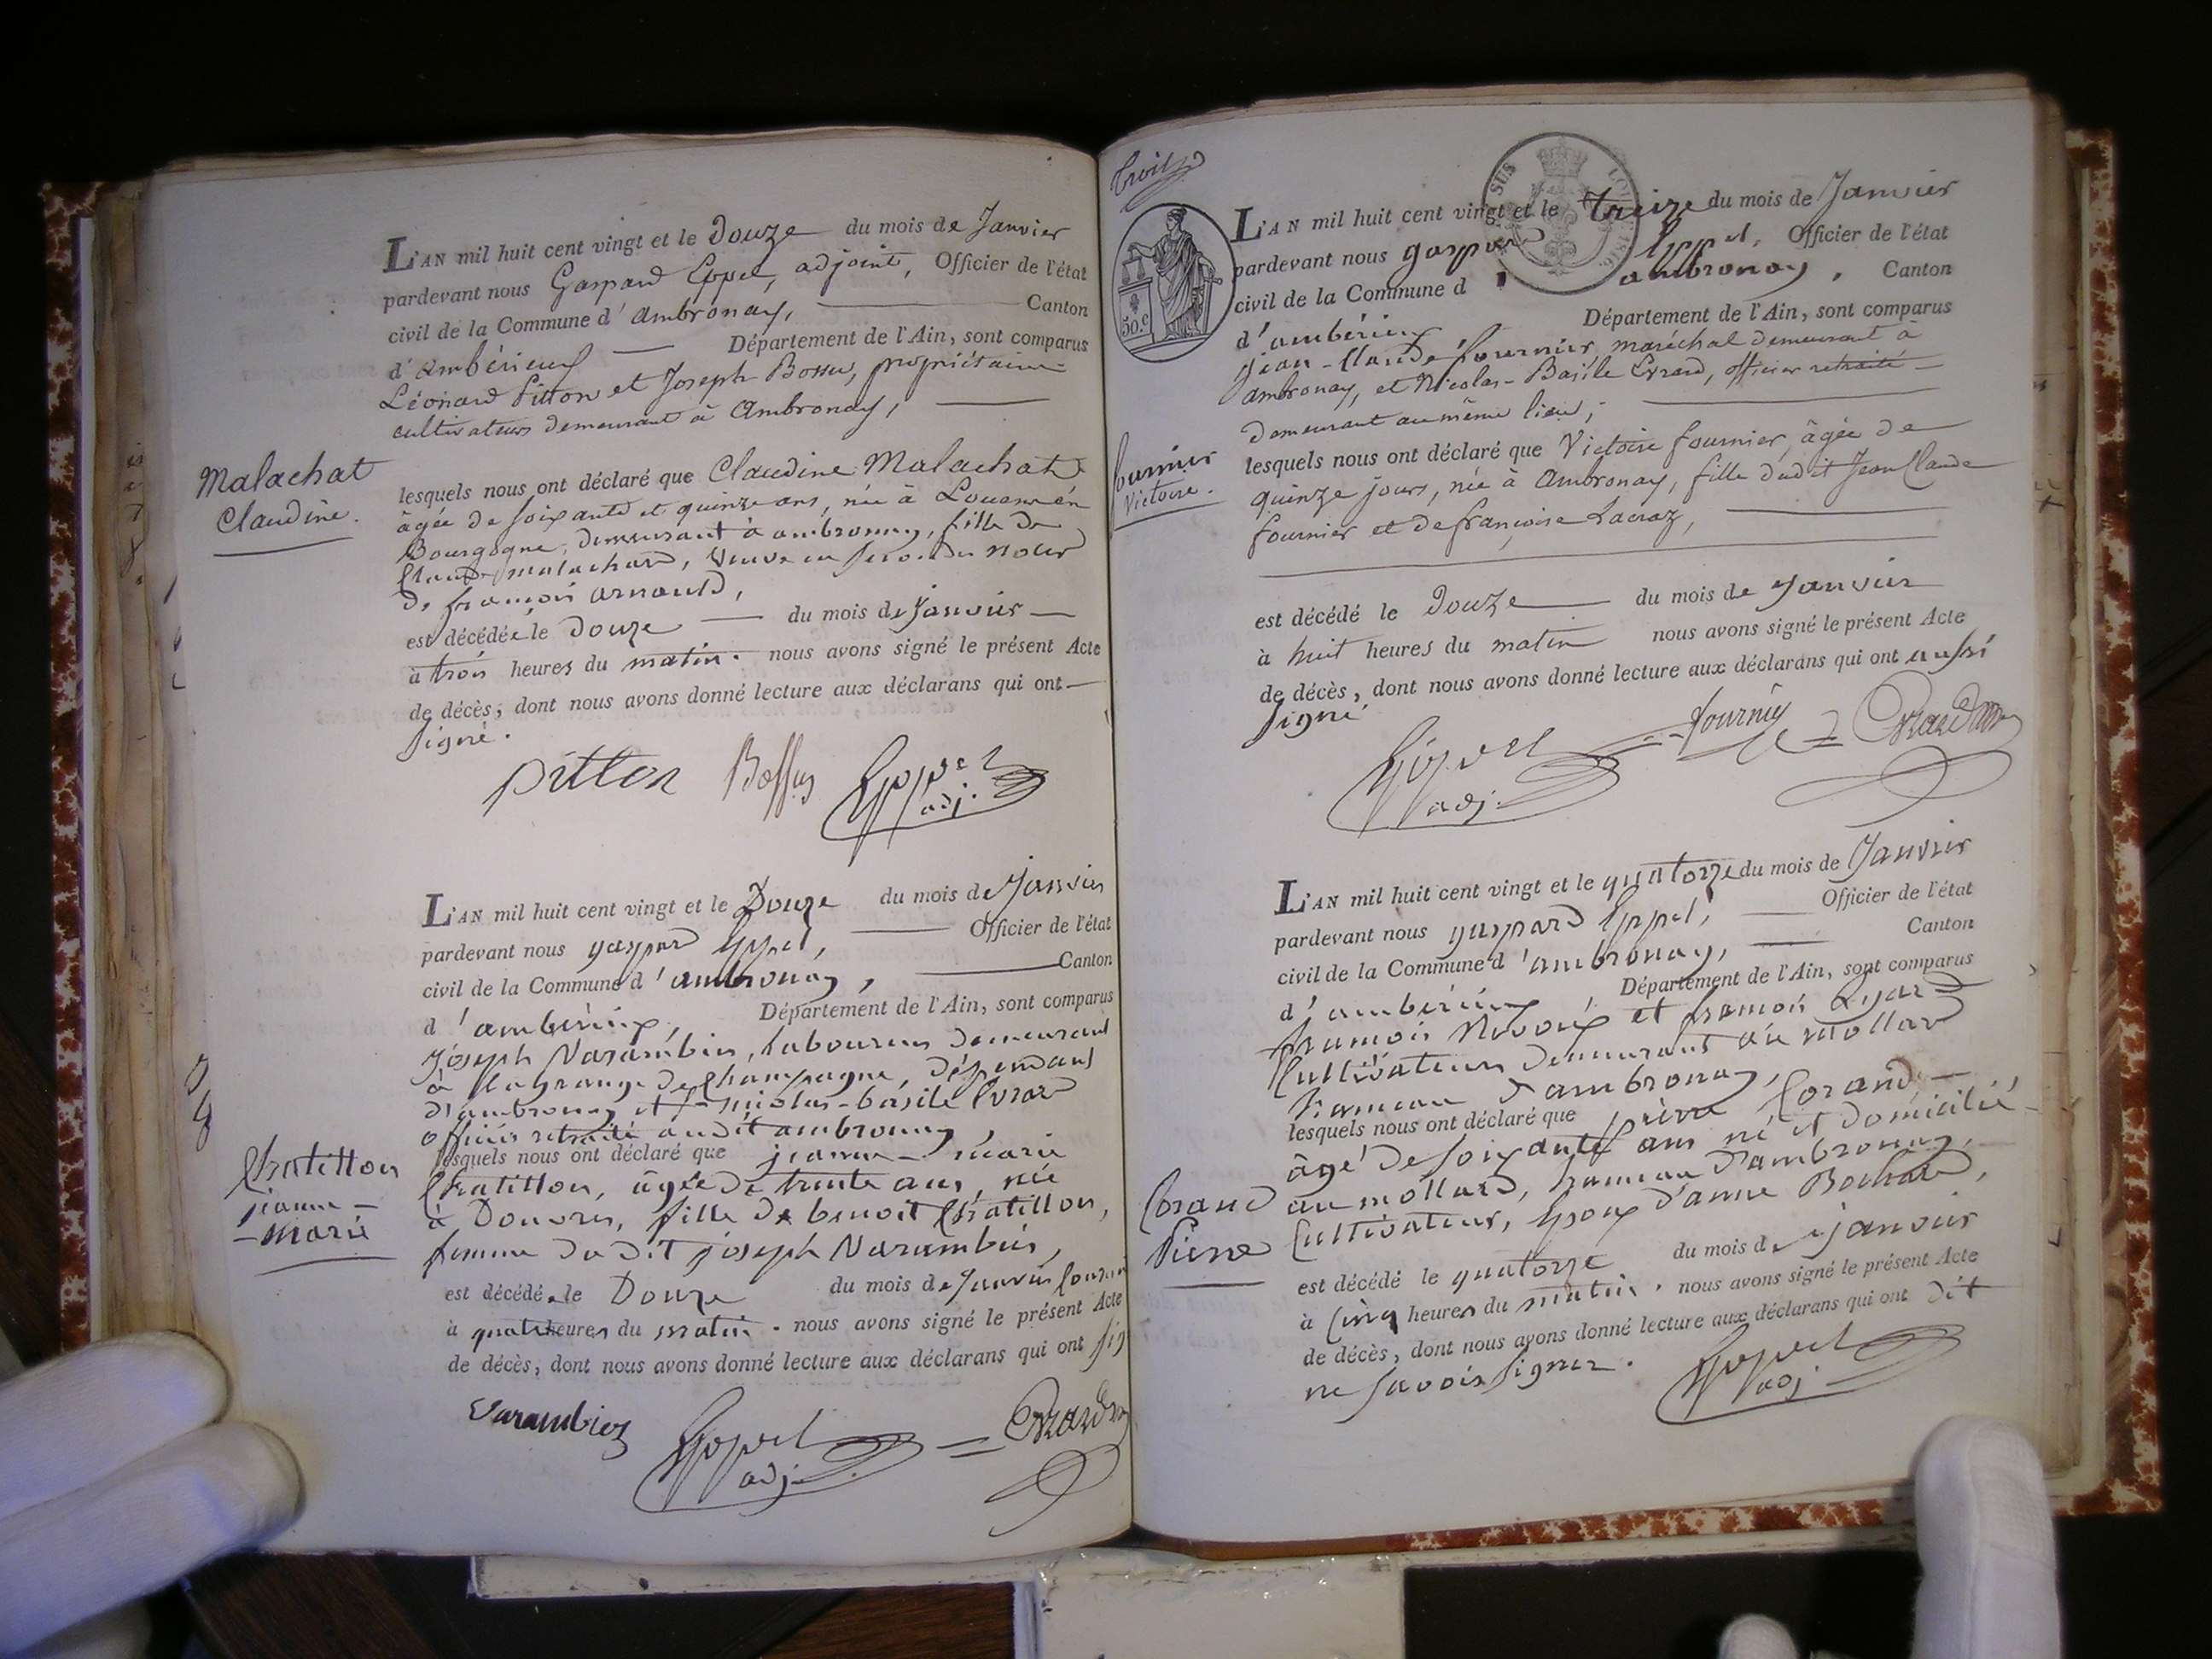 L'AN mil huit cent vingt et le Douze du mois de Janvier
pardevant nous Gaspard Eppel, adjoint, Officier de l'état
civil de la Commune d'Ambronay, Canton
d'Ambérieux Département de l'Ain, sont comparus
Léonard Pitton et Joseph Bossu, propriétaires
cultivateurs demeurant à Ambronay,
Malachat
Claudine.
lesquels nous ont déclaré que Claudine Malachat
âgée de soixante et quinze ans, née à Louans en
Bourgogne, demeurant à ambronay, fille de
Claude malachard, Veuve en secondes noces
de françois arnauld,
est décédée le Douze du mois de Janvier
à trois heures du matin. nous avons signé le présent Acte
de décès, dont nous avons donné lecture aux déclarans qui ont
signé.
pitton Bossu Eppel
adj.
L'AN mil huit cent vingt et le Douze du mois de Janvier
pardevant nous gaspard Eppel, Officier de l'état
civil de la Commune d'ambronay, Canton
d'ambérieux, Département de l'Ain, sont comparus
Joseph Varambier, Laboureur demeurant
à la grange de Champagne, dépendant
d'ambronay et nicolas-basile Evrard
officier retraité audit ambronay,
Chatillon
jeanne-
-marie
lesquels nous ont déclaré que jeanne-marie
Chatillon, âgée de trente ans, née
à Douvres, fille de benoit Chatillon,
femme dudit joseph Varambier,
est décédée le Douze du mois de Janvier
à quatre heures du matin. nous avons signé le présent Acte
de décès, dont nous avons donné lecture aux déclarans qui ont sig
Varambier Eppel Evrard
adj.
SUS
50.c
L'AN mil huit cent vingt et le treize du mois de Janvier
pardevant nous gaspard Eppel, Officier de l'état
civil de la Commune d'ambronay, Canton
d'ambérieux Département de l'Ain, sont comparus
jean-Claude fournier, maréchal demeurant à
ambronay, et Nicolas-Basile Evrard, officier retraité
demeurant au même lieu;
fournier
Victoire.
lesquels nous ont déclaré que Victoire fournier, âgée de
quinze jours, née à Ambronay, fille dudit Jean Claude
fournier et de françoise Lacroz,
est décédé le Douze du mois de Janvier
à huit heures du matin nous avons signé le présent Acte
de décès, dont nous avons donné lecture aux déclarans qui ont aussi
signé.
Eppel fournier Evrard
adj.
L'AN mil huit cent vingt et le quatorze du mois de Janvier
pardevant nous gaspard Eppel, Officier de l'état
civil de la Commune d'ambronay, Canton
d'ambérieux, Département de l'Ain, sont comparus
françois et françois
Cultivateurs demeurant au mollard
hameau d'ambronay,
lesquels nous ont déclaré que pierre Corand
âgé de soixante ans né et domicilié
au mollard, hameau d'ambronay,
Cultivateur, Epoux d'anne Bochard,
Corand
Pierre
est décédé le quatorze du mois de janvier
à Cinq heures du matin. nous avons signé le présent Acte
de décès, dont nous avons donné lecture aux déclarans qui ont dit
ne savoir signer. Eppel
adj